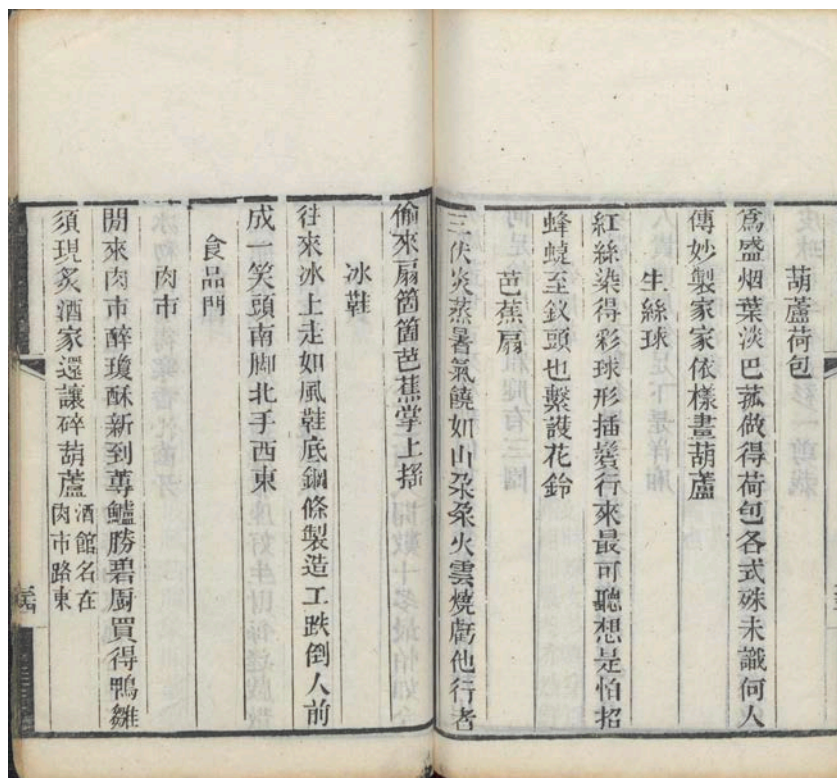 葫蘆荷包
爲盛烟葉淡巴菰做得荷包各式殊未識何人
傳妙製家家依樣畫葫蘆
生絲球
紅絲染得彩球形插鬢行來最可聽想是怕招
蜂蜨至釵頭也繫護花鈴
芭蕉扇
三伏炎蒸暑氣饒如山朶朶火雲燒虧他行者
偷來扇箇箇芭蕉掌上搖
冰鞋
往來冰上走如風鞋底鋼條製造工跌倒人前
成一笑頭南脚北手西東
食品門
肉市
閒來肉市醉瓊酥新到蓴鱸勝碧廚買得鴨雛
須現炙酒家還讓碎葫蘆
酒館名在
肉市路東